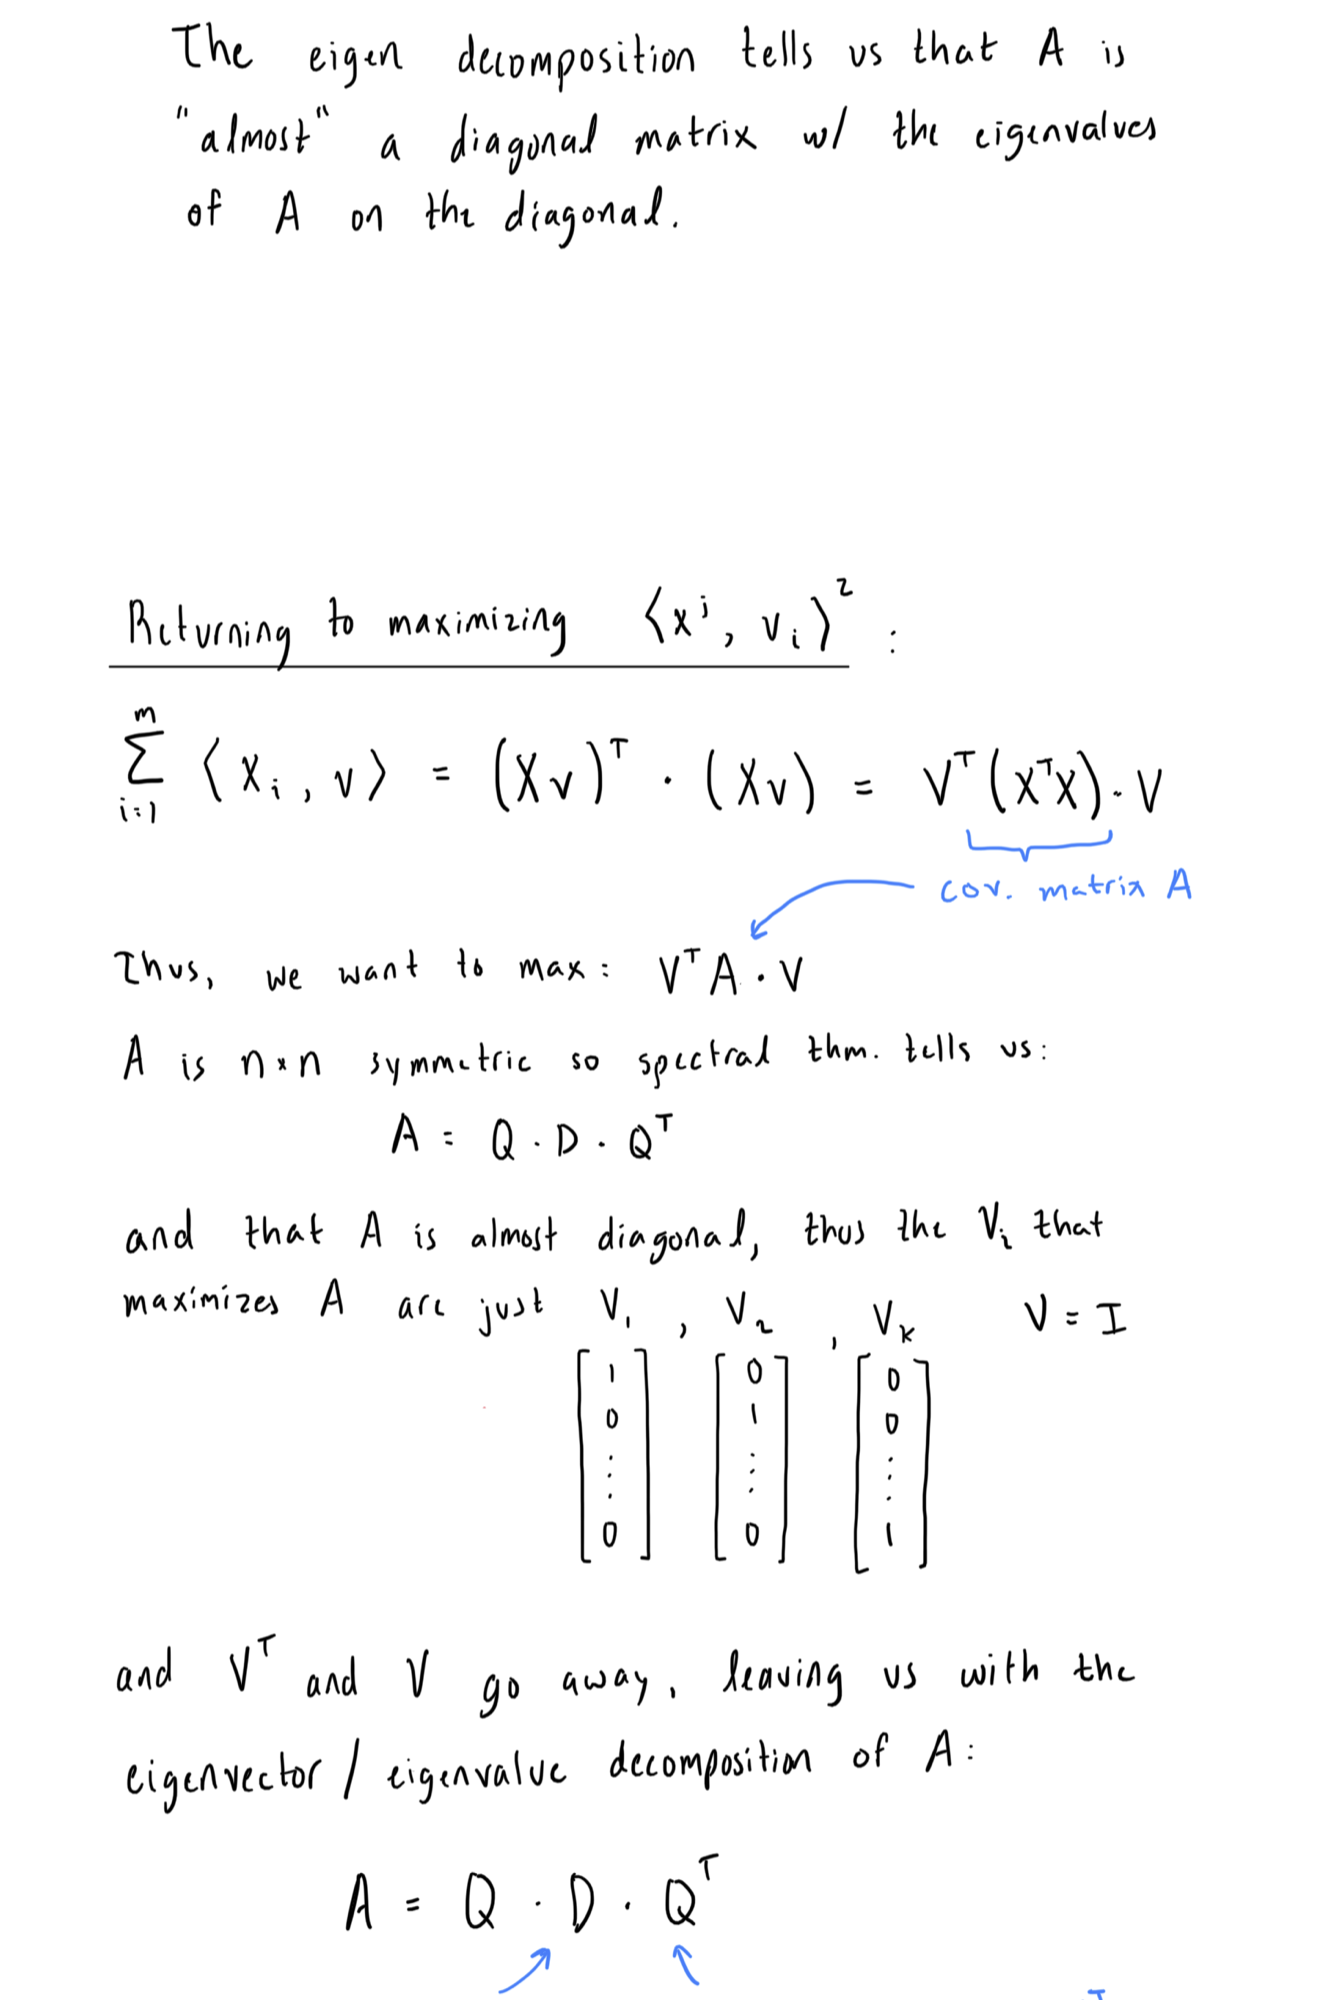 The eigen decomposition tells us that A is
"almost" a diagonal matrix w/ the eigenvalues
of A on the diagonal.
Returning to maximizing ⟨x^j, v_i⟩² :
∑_{i=1}^{m} ⟨x_i, v⟩ = (Xv)^T · (Xv) = V^T(X^TX)·V
cov. matrix A
Thus, we want to max: V^T A · V
A is n×n symmetric so spectral thm. tells us:
A = Q · D · Q^T
and that A is almost diagonal, thus the V_i that
maximizes A are just V_1, V_2, V_k V = I
[1 0 ⋮ 0] [0 1 ⋮ 0] [0 0 ⋮ 1]
and V^T and V go away, leaving us with the
eigenvector / eigenvalue decomposition of A:
A = Q · D · Q^T